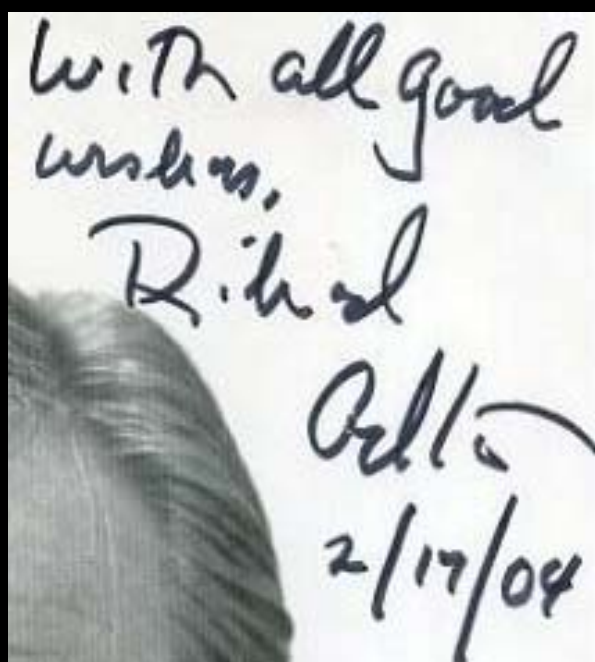 With all good
wishes,
Richard
2/17/04